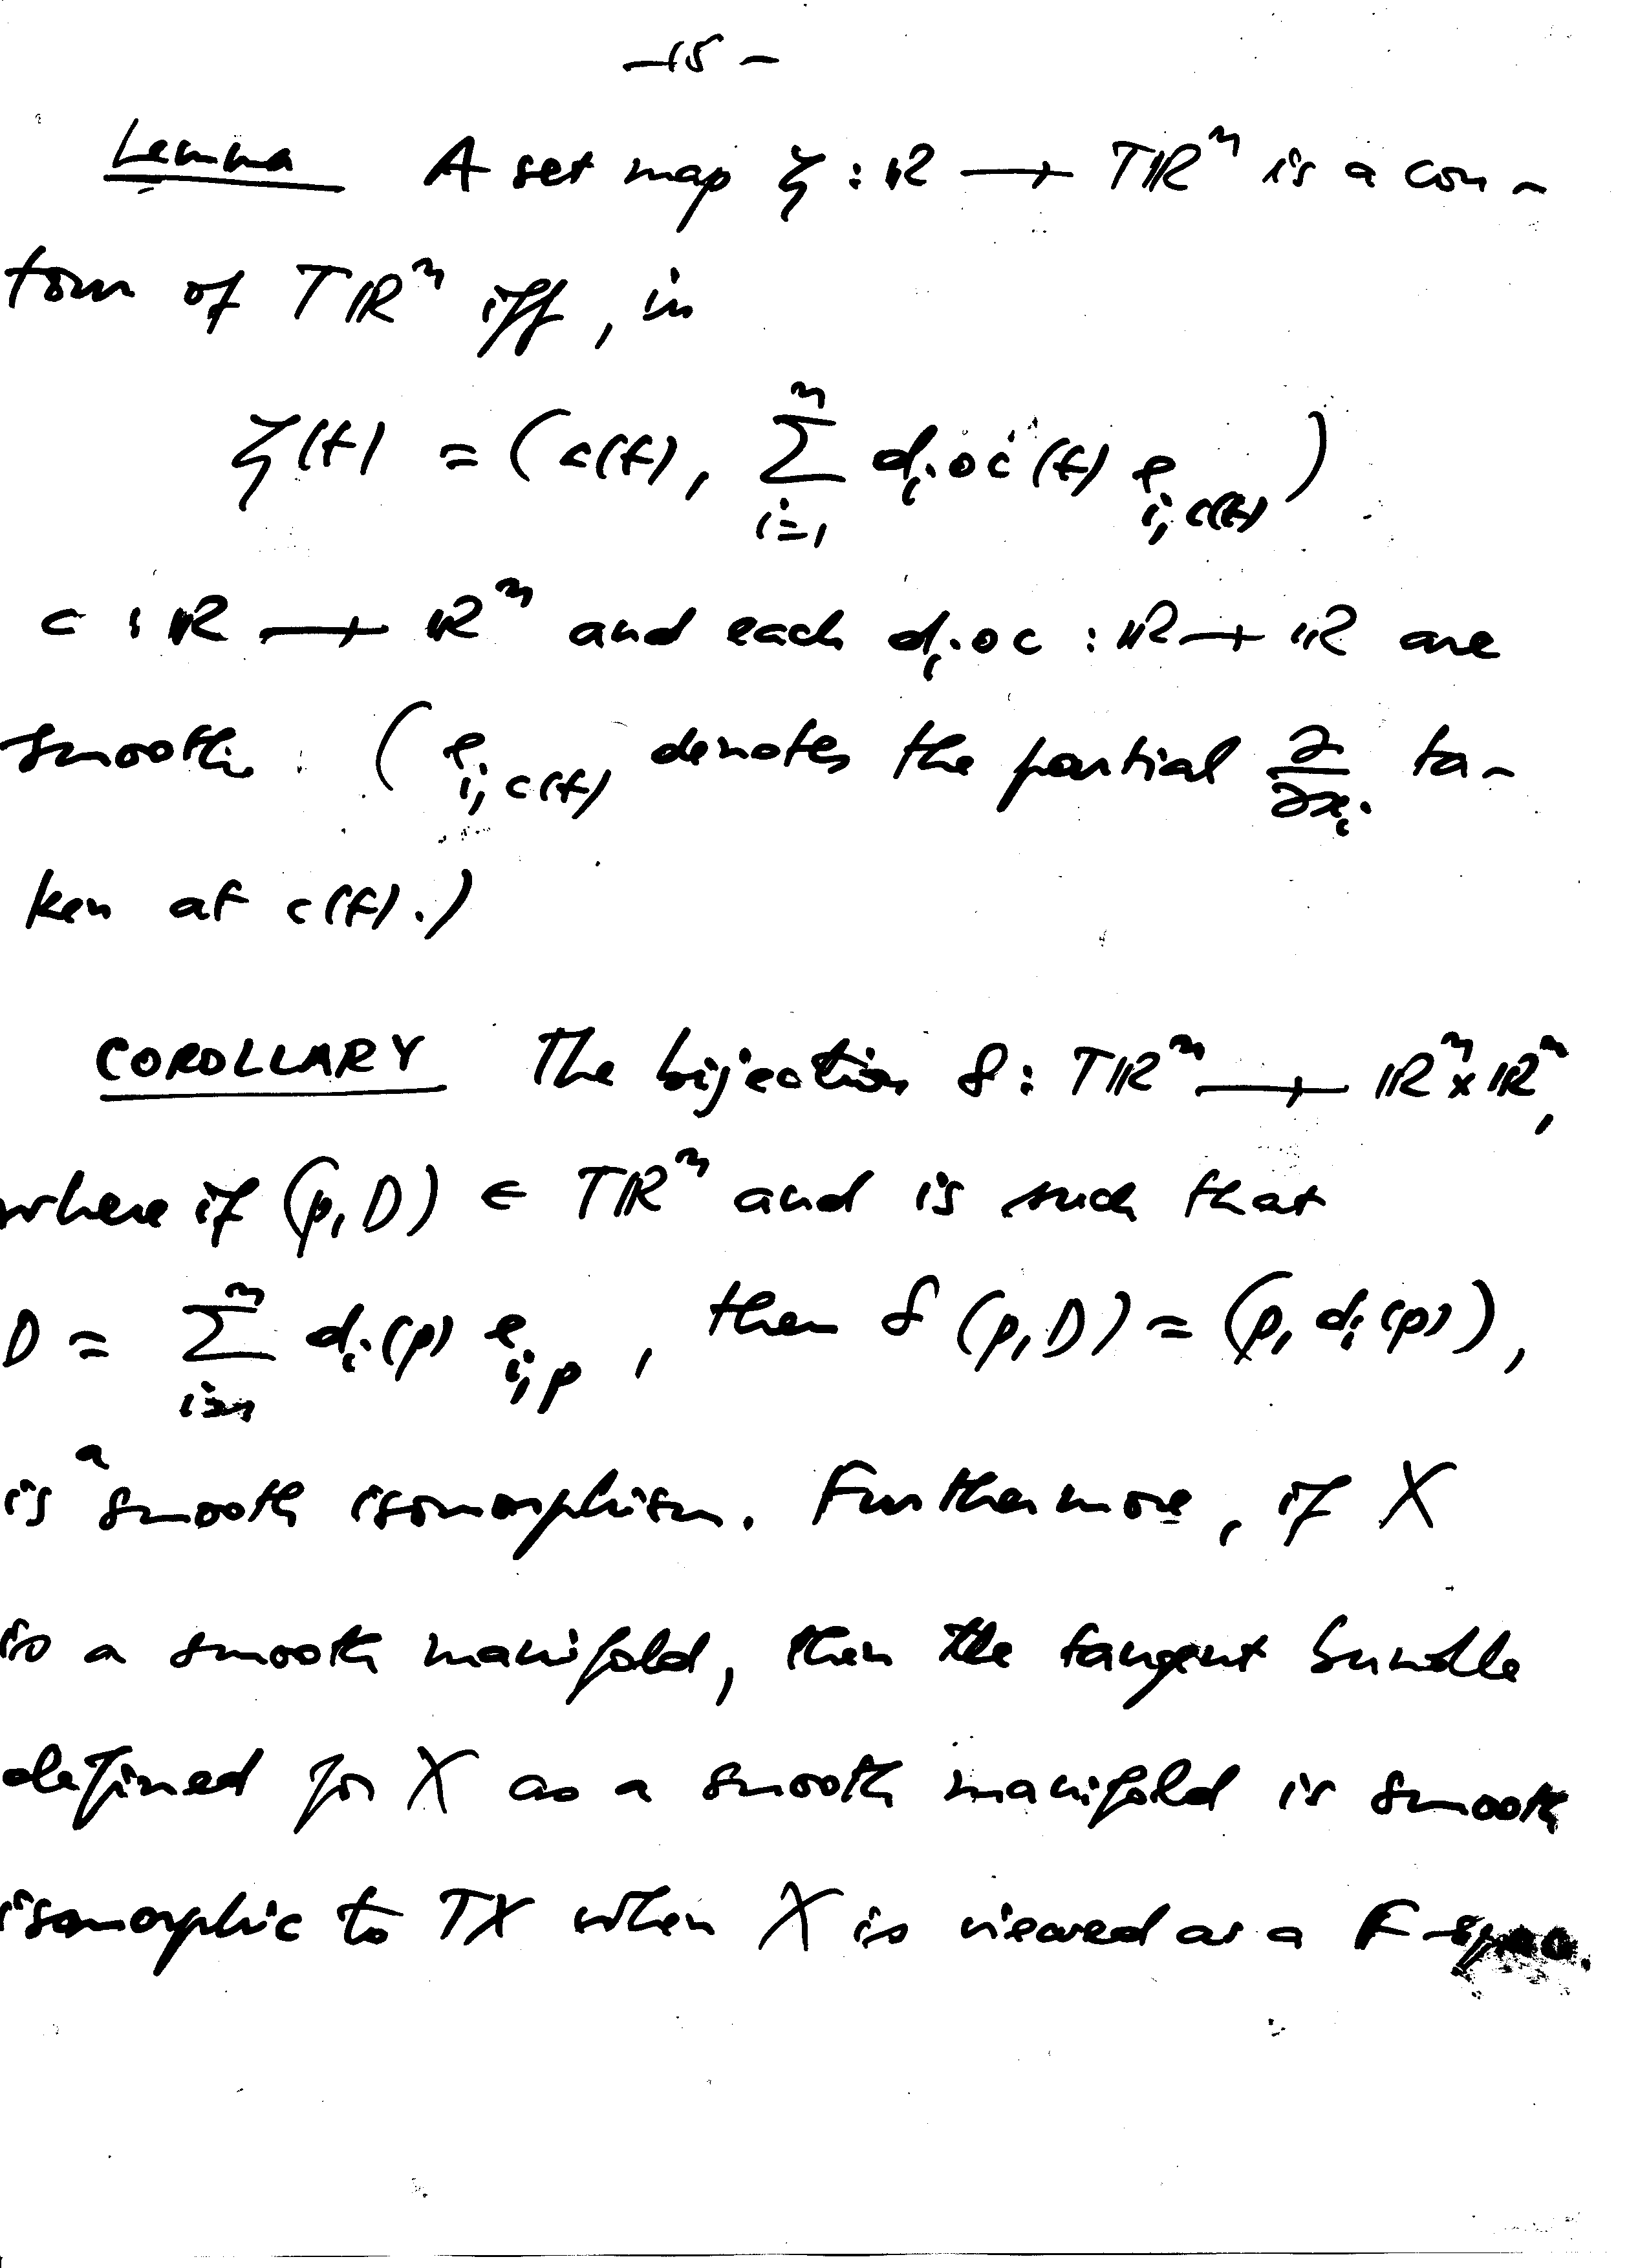 —15—
Lemma A set map ζ : ℝ → Tℝⁿ is a con-
tour of Tℝⁿ iff, in
ζ(t) = (c(t), ∑_{i=1}^{n} dᵢ∘c(t) e_{i,c(t)})
c : ℝ → ℝⁿ and each dᵢ∘c : ℝ → ℝ are
smooth. (e_{i,c(t)} denotes the partial ∂/∂xᵢ ta-
ken at c(t).)
COROLLARY The bijection δ : Tℝⁿ → ℝⁿ × ℝⁿ,
where if (p,D) ∈ Tℝⁿ and is such that
D = ∑_{i=1}^{n} dᵢ(p) e_{i,p}, then δ(p,D) = (p, dᵢ(p)),
is a smooth isomorphism. Furthermore, if X
is a smooth manifold, then the tangent bundle
defined for X as a smooth manifold is smooth
isomorphic to TX when X is viewed as a F-